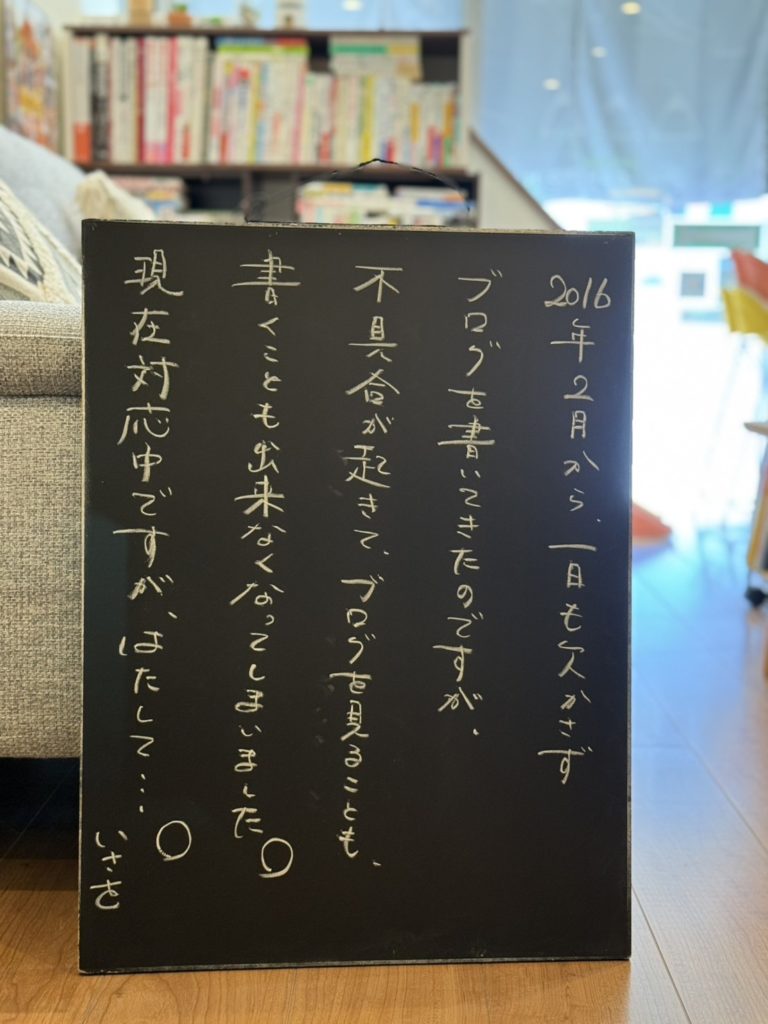 2016年2月から、一日も欠かさず
ブログを書いてきたのですが、
不具合が起きて、ブログを見ることも、
書くことも出来なくなってしまいました。
現在対応中ですが、はたして…。
いさを